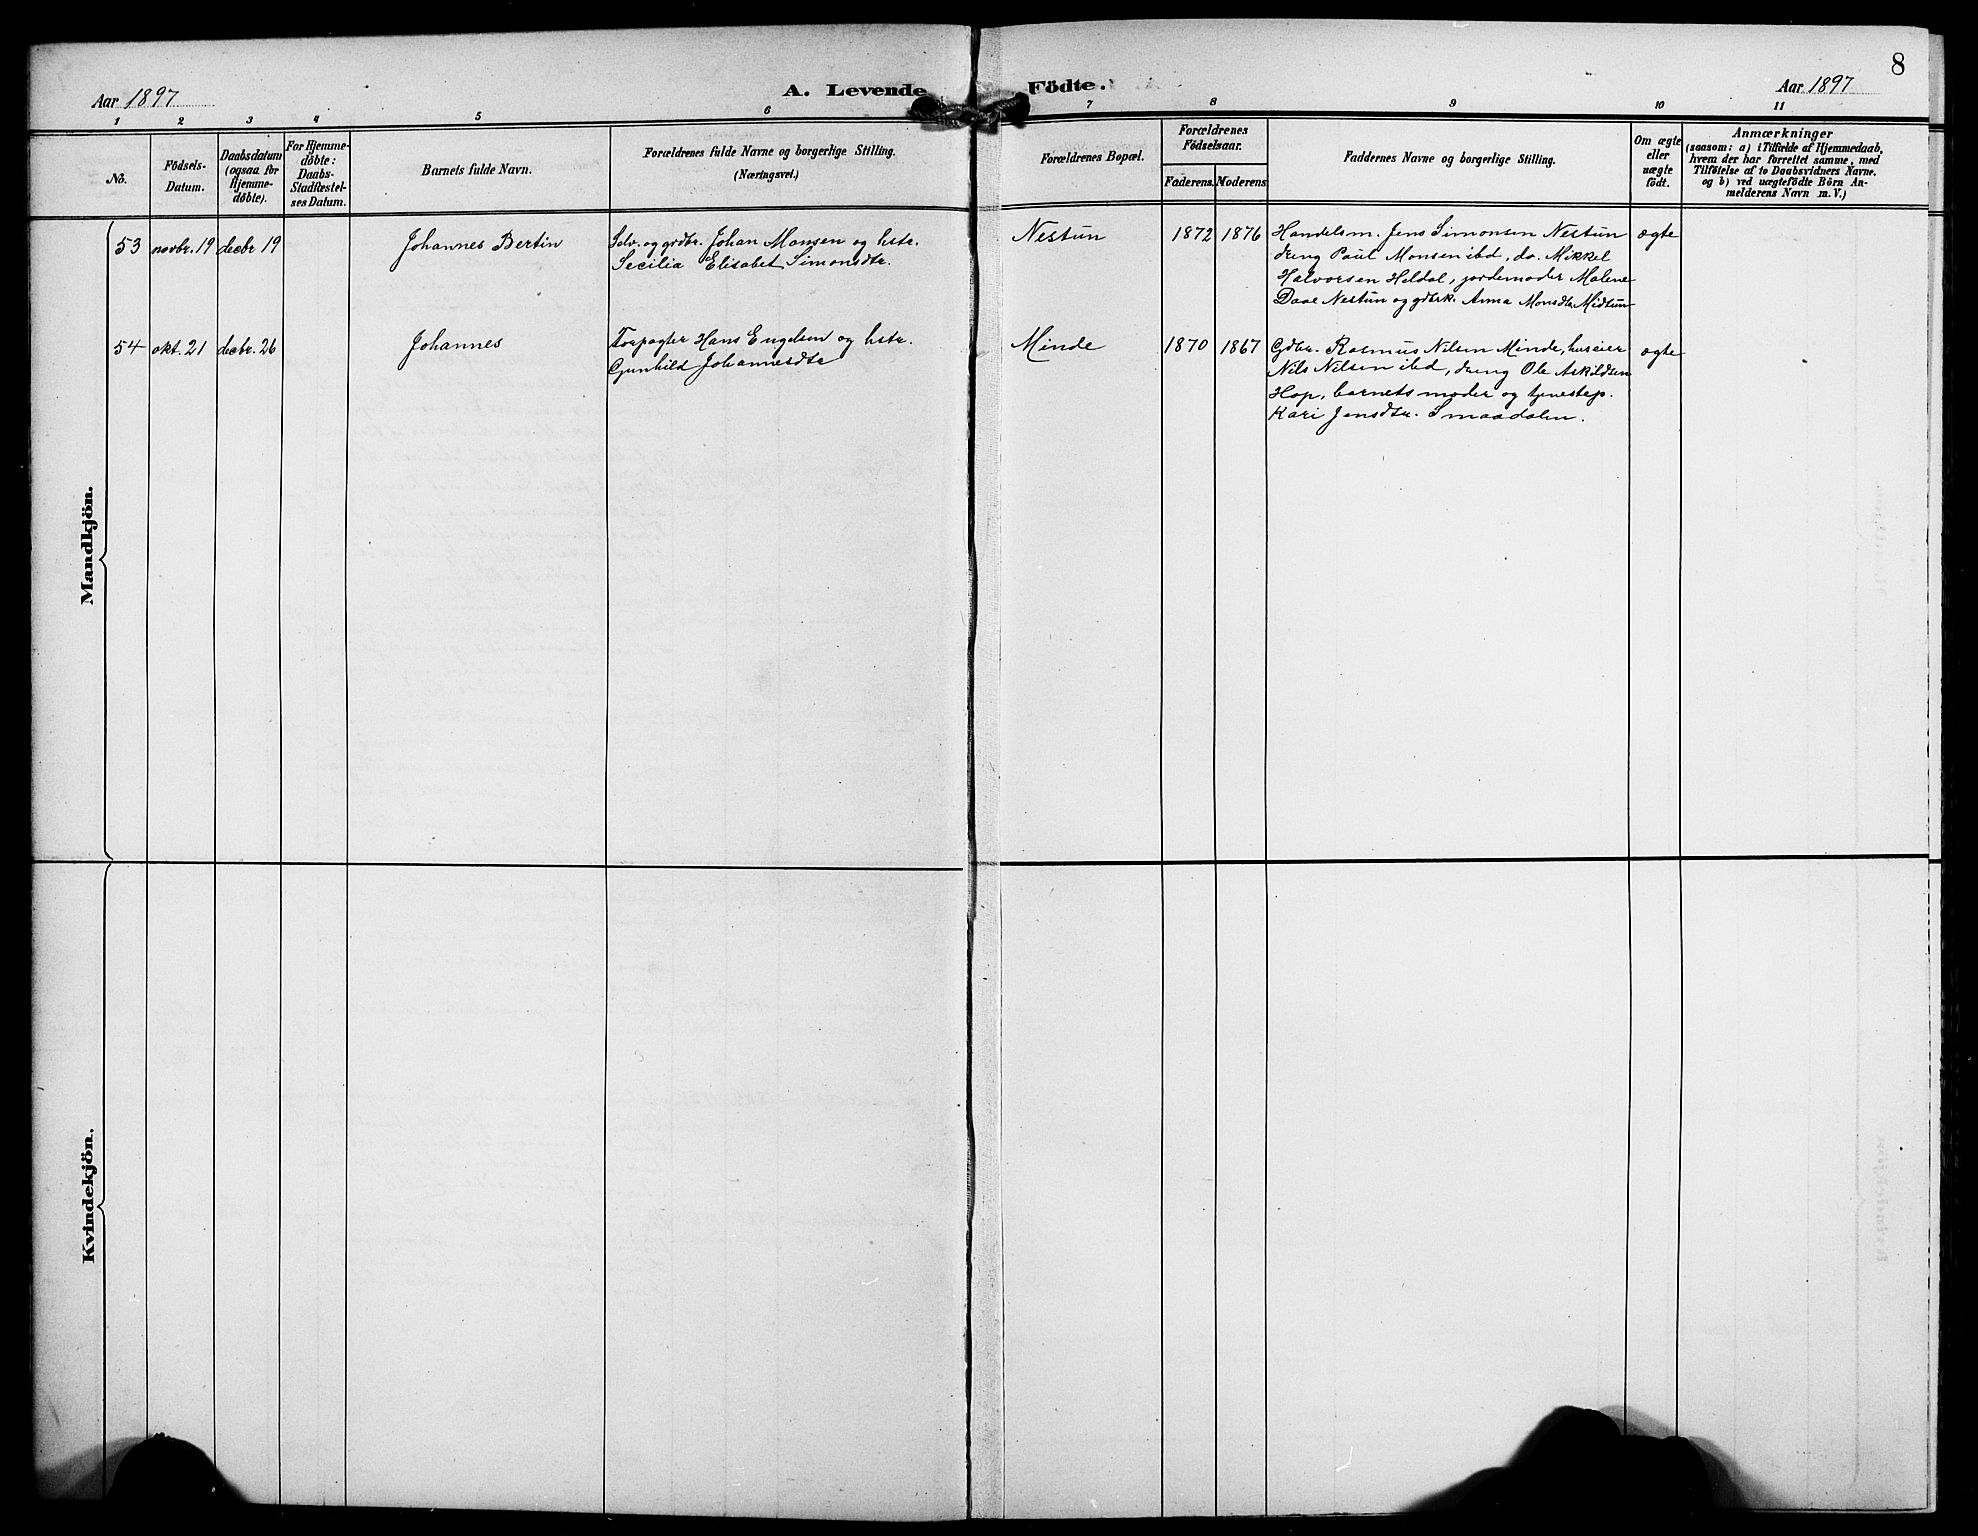 8
Aar 1897
A. Levende Födte.
Aar 1897
1 2 3 4 5 6 7 8 9 10 11
No.
Födsels-
Datum.
Daabsdatum
(ogsaa for
Hjemme-
døbte).
For Hjemme-
døbte:
Daabs-
Stadfæstel-
ses Datum.
Barnets fulde Navn.
Forældrenes fulde Navne og borgerlige Stilling.
(Næringsvei.)
Forældrenes Bopæl.
Forældrenes
Födselsaar.
Faderens. Moderens.
Faddernes Navne og borgerlige Stilling.
Om ægte
eller
uægte
födt.
Anmærkninger
(saasom: a) i Tilfælde af Hjemmedaab,
hvem der har forrettet samme, med
Tilföielse af to Daabsvidners Navne.
og b) ved uægtefödte Börn An-
melderens Navn m. V.)
Mandkjön.
53 novbr. 19 decbr 19 Johannes Bertin
Selv. og grdbr. Johan Monsen og hstr.
Secilia Elisabet Simonsdtr.
Nestun 1872 1876
Handelsm. Jens Simonsen Nestun
dreng Paul Monsen ibd, do. Mikkel
Halvorsen Heldal, jordemoder Malene
Daae Nestun og gdbrk. Anna Monsdtr Midtun
ægte
54 okt. 21 decbr. 26 Johannes
Forpagter Hans Engelsen og hstr.
Gunhild Johannesdtr
Minde 1870 1867
Gdbr. Rasmus Nilsen Minde, huseier
Nils Nilsen ibd, dreng Ole Askildsen
Hop, barnets moder og tjenestep.
Kari Jensdtr. Smaadalen.
ægte
Kvindekjön.